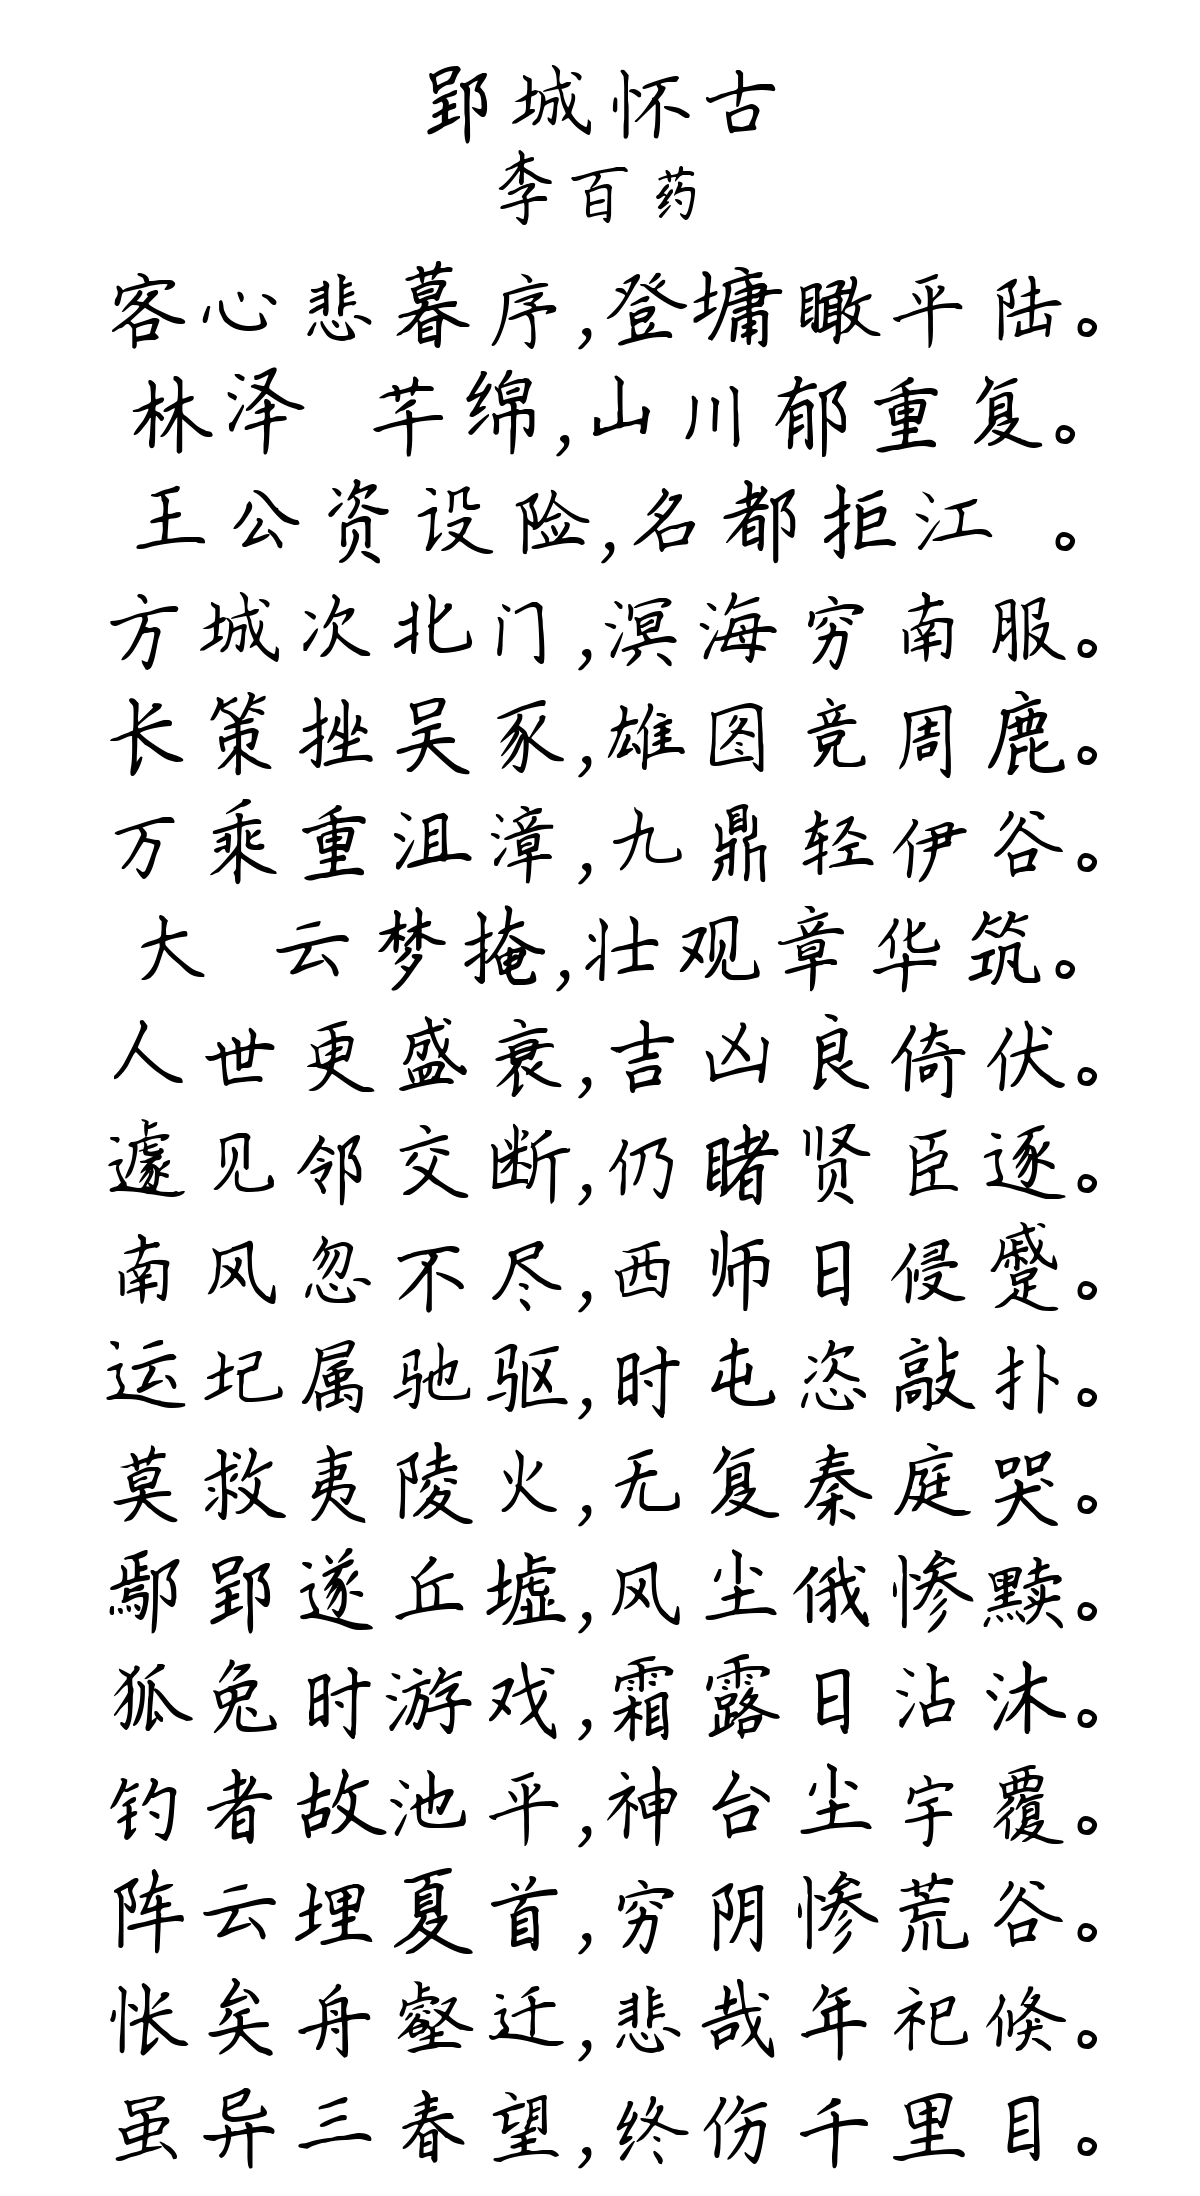 郢城怀古
李百药
客心悲暮序,登墉瞰平陆。
林泽 芊绵,山川郁重复。
王公资设险,名都拒江 。
方城次北门,溟海穷南服。
长策挫吴豕,雄图竞周鹿。
万乘重沮漳,九鼎轻伊谷。
大 云梦掩,壮观章华筑。
人世更盛衰,吉凶良倚伏。
遽见邻交断,仍睹贤臣逐。
南风忽不尽,西师日侵蹙。
运圮属驰驱,时屯恣敲扑。
莫救夷陵火,无复秦庭哭。
鄢郢遂丘墟,风尘俄惨黩。
狐兔时游戏,霜露日沾沐。
钓者故池平,神台尘宇覆。
阵云埋夏首,穷阴惨荒谷。
怅矣舟壑迁,悲哉年祀倏。
虽异三春望,终伤千里目。